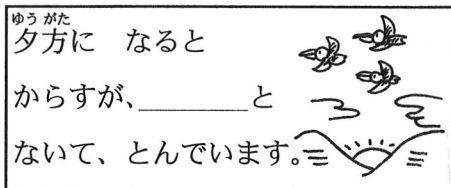 ゆうがた
夕方に　なると
からすが、________と
ないて、とんでいます。